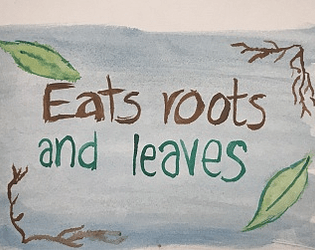 Eats roots
and leaves